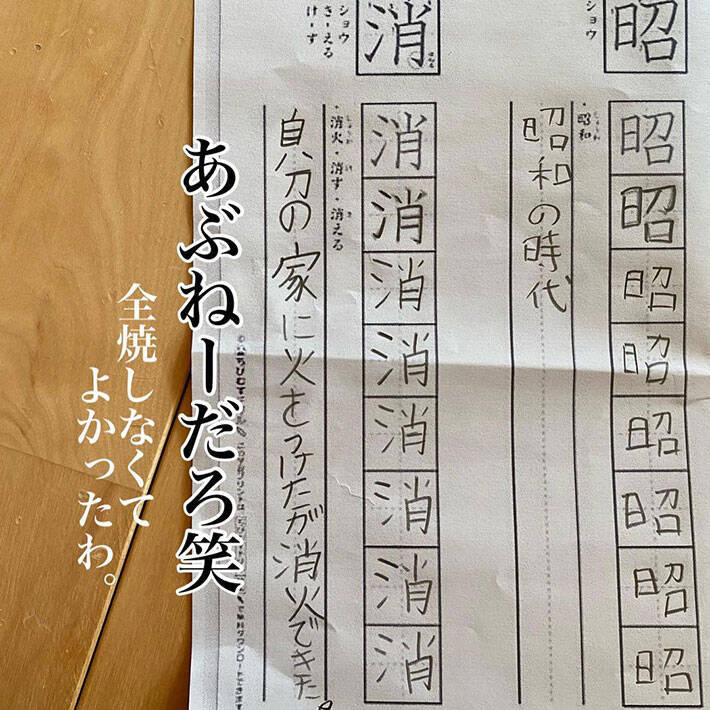 昭
ショウ
昭
昭
昭
昭
昭
昭
昭
昭
・昭和
しょうわ
昭和の時代
消
ショウ
き-える
け-す
消
消
消
消
消
消
消
消
・消火・消す・消える
しょうか
け
き
自分の家に火をつけたが消火できた。
あぶねーだろ笑
全焼しなくて
よかったわ。